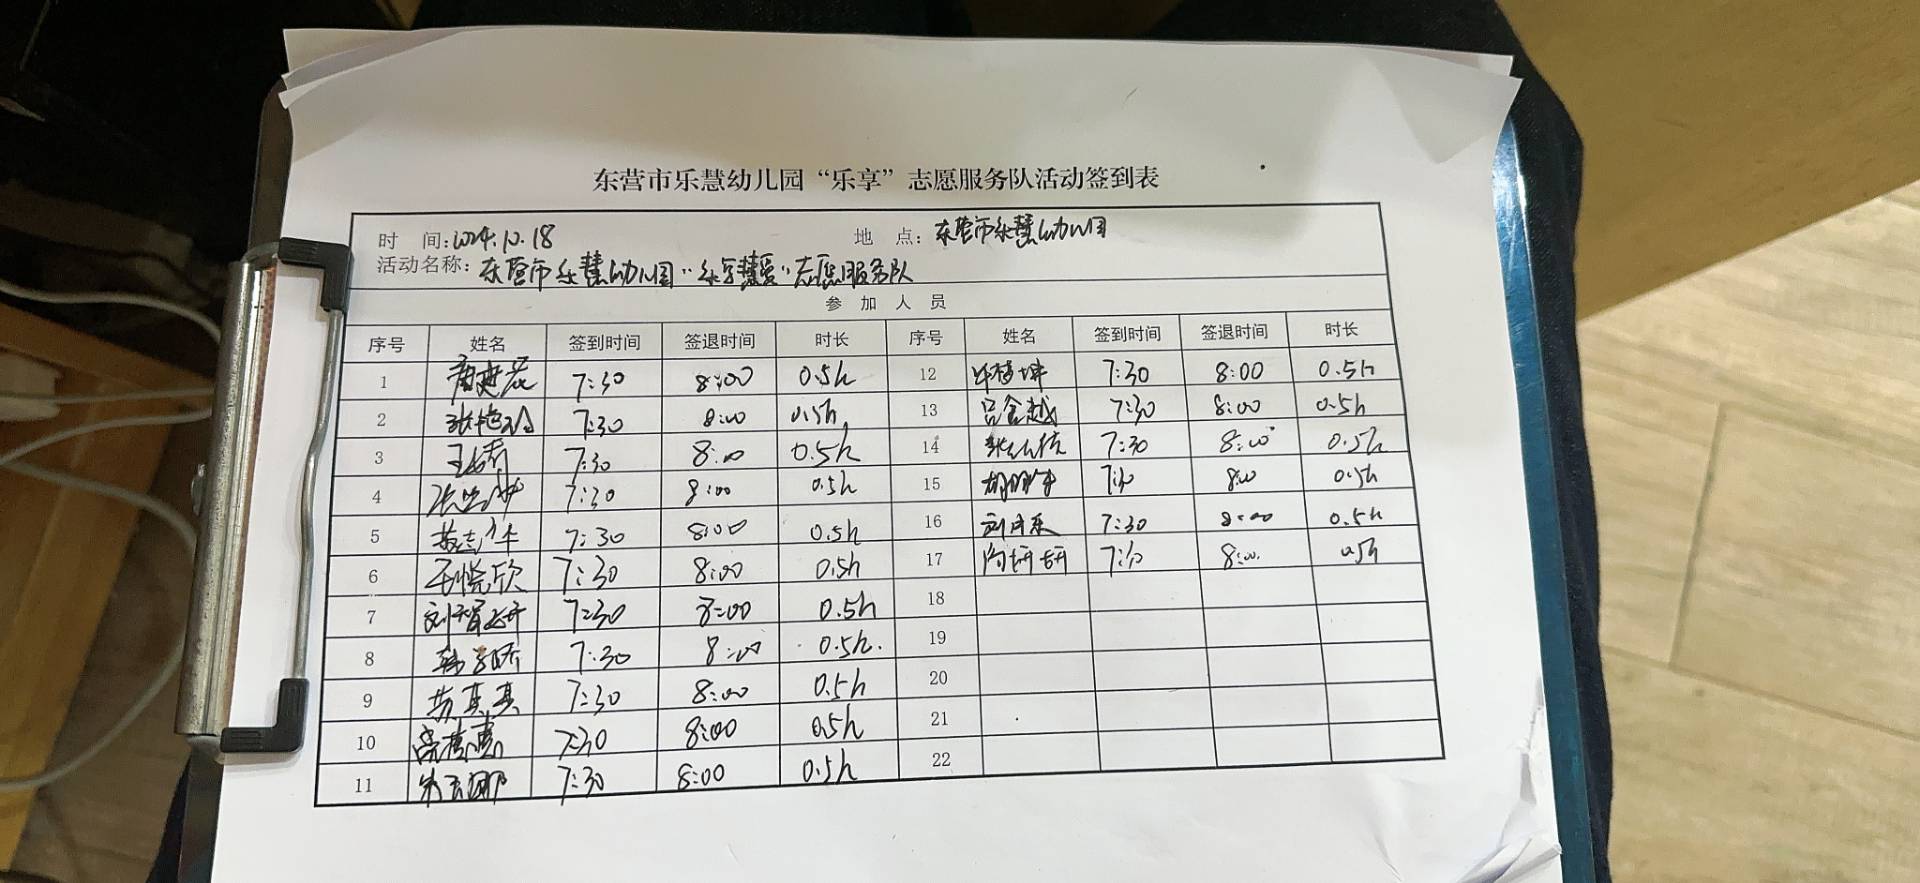 东营市乐慧幼儿园“乐享”志愿服务队活动签到表
时 间:2024.10.18 地 点:东营市乐慧幼儿园
活动名称:东营市乐慧幼儿园“乐享慧爱”志愿服务队
参 加 人 员
序号 姓名 签到时间 签退时间 时长 序号 姓名 签到时间 签退时间 时长
1 7:30 8:00 0.5h 12 7:30 8:00 0.5h
2 7:30 8:00 0.5h 13 吕金越 7:30 8:00 0.5h
3 7:30 8:00 0.5h 14 7:30 8:00 0.5h
4 7:30 8:00 0.5h 15 7:30 8:00 0.5h
5 7:30 8:00 0.5h 16 7:30 8:00 0.5h
6 7:30 8:00 0.5h 17 7:30 8:00 0.5h
7 7:30 8:00 0.5h 18
8 7:30 8:00 0.5h 19
9 苏真真 7:30 8:00 0.5h 20
10 7:30 8:00 0.5h 21
11 7:30 8:00 0.5h 22